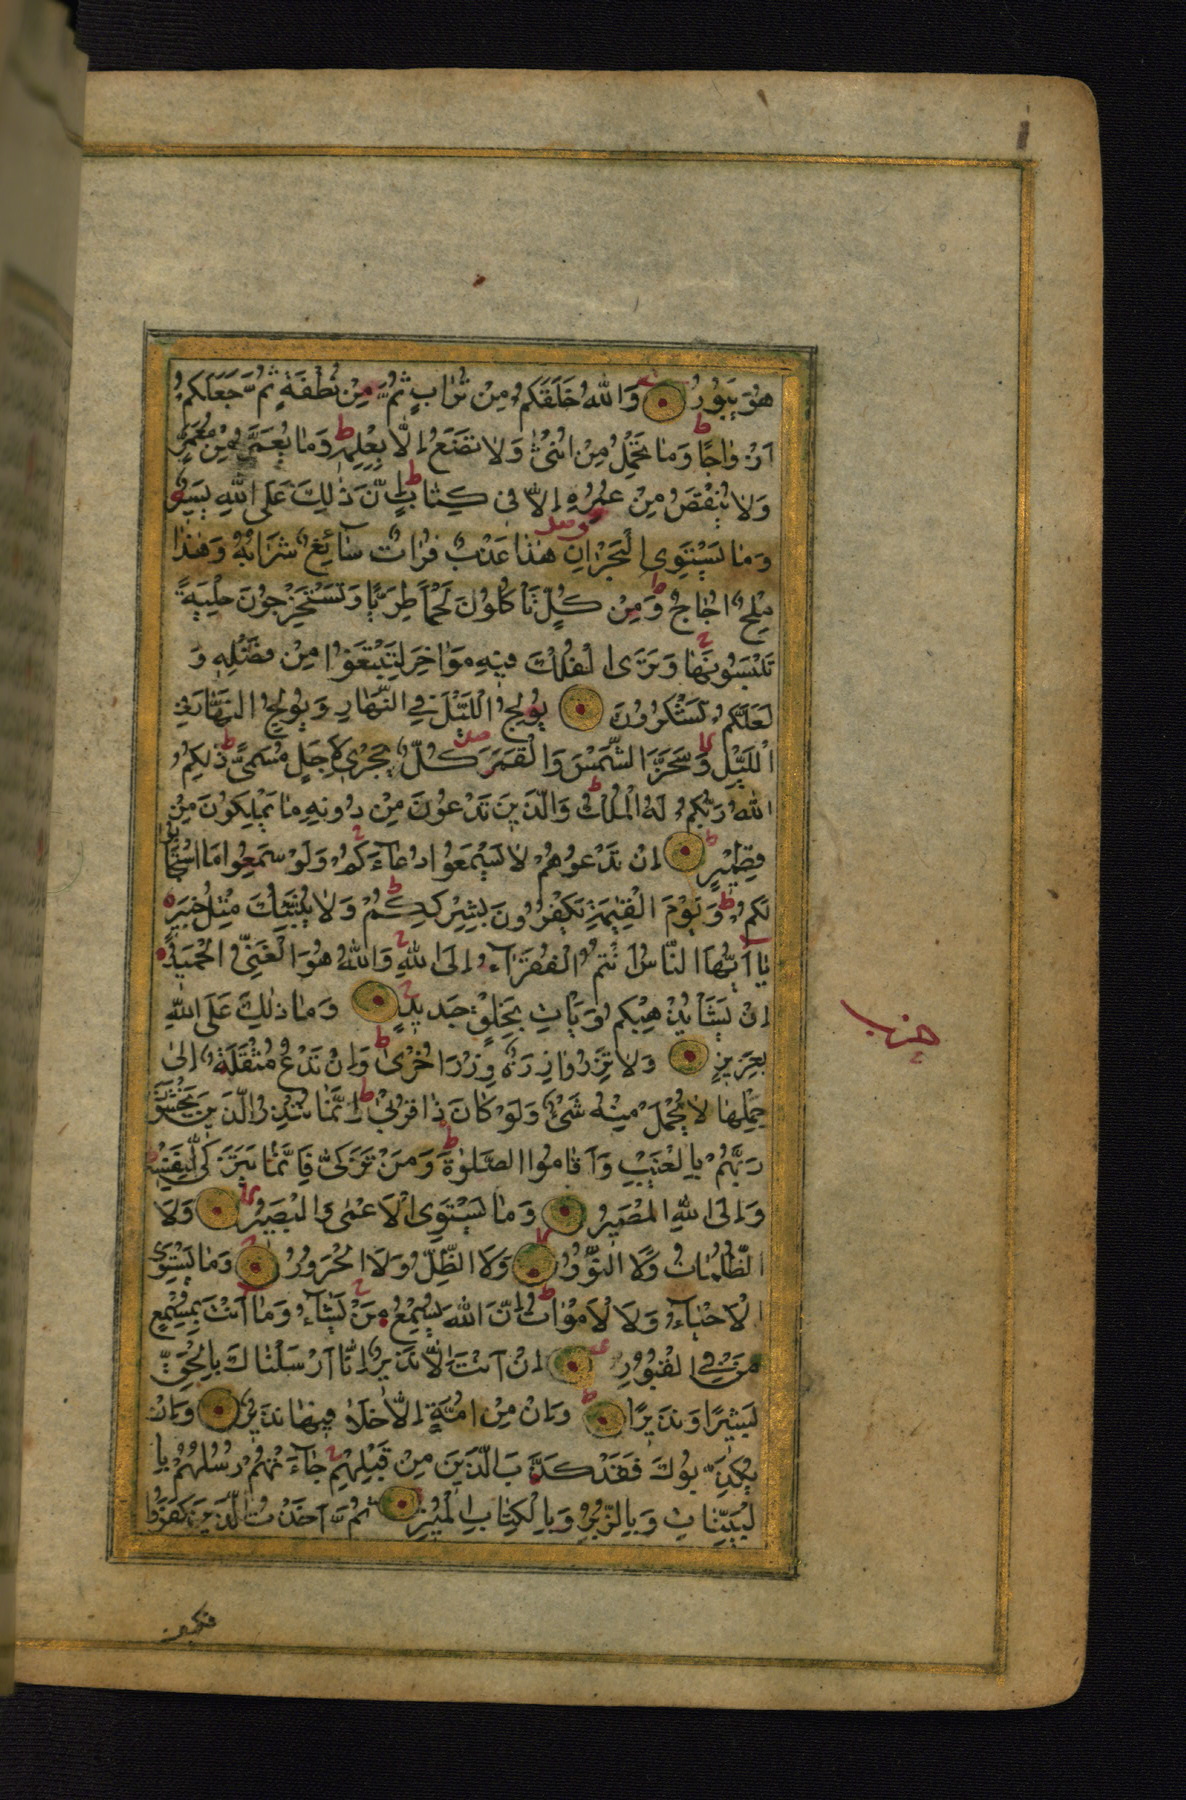 هُوَ يَبُورُ وَاللّٰهُ خَلَقَكُمْ مِنْ تُرَابٍ ثُمَّ مِنْ نُطْفَةٍ ثُمَّ جَعَلَكُمْ
اَزْوَاجًا وَمَا تَحْمِلُ مِنْ اُنْثٰى وَلَا تَضَعُ اِلَّا بِعِلْمِهِ وَمَا يُعَمَّرُ مِنْ مُعَمَّرٍ
وَلَا يُنْقَصُ مِنْ عُمُرِهِ اِلَّا فِى كِتَابٍ اِنَّ ذٰلِكَ عَلَى اللّٰهِ يَسِيرٌ
وَمَا يَسْتَوِى الْبَحْرَانِ هٰذَا عَذْبٌ فُرَاتٌ سَآئِغٌ شَرَابُهُ وَهٰذَا
مِلْحٌ اُجَاجٌ وَمِنْ كُلٍّ تَأْكُلُونَ لَحْمًا طَرِيًّا وَتَسْتَخْرِجُونَ حِلْيَةً
تَلْبَسُونَهَا وَتَرَى الْفُلْكَ فِيهِ مَوَاخِرَ لِتَبْتَغُوا مِنْ فَضْلِهِ وَ
لَعَلَّكُمْ تَشْكُرُونَ يُولِجُ الَّيْلَ فِي النَّهَارِ وَيُولِجُ النَّهَارَ فِي
الَّيْلِ وَسَخَّرَ الشَّمْسَ وَالْقَمَرَ كُلٌّ يَجْرِى لِاَجَلٍ مُسَمًّى ذٰلِكُمُ
اللّٰهُ رَبُّكُمْ لَهُ الْمُلْكُ وَالَّذِينَ تَدْعُونَ مِنْ دُونِهِ مَا يَمْلِكُونَ مِنْ
قِطْمِيرٍ اِنْ تَدْعُوهُمْ لَا يَسْمَعُوا دُعَآءَكُمْ وَلَوْ سَمِعُوا مَا اسْتَجَابُوا
لَكُمْ وَيَوْمَ الْقِيٰمَةِ يَكْفُرُونَ بِشِرْكِكُمْ وَلَا يُنَبِّئُكَ مِثْلُ خَبِيرٍ
يَا اَيُّهَا النَّاسُ اَنْتُمُ الْفُقَرَآءُ اِلَى اللّٰهِ وَاللّٰهُ هُوَ الْغَنِىُّ الْحَمِيدُ
اِنْ يَشَأْ يُذْهِبْكُمْ وَيَأْتِ بِخَلْقٍ جَدِيدٍ وَمَا ذٰلِكَ عَلَى اللّٰهِ
بِعَزِيزٍ وَلَا تَزِرُ وَازِرَةٌ وِزْرَ اُخْرٰى وَاِنْ تَدْعُ مُثْقَلَةٌ اِلٰى
حزب
حِمْلِهَا لَا يُحْمَلْ مِنْهُ شَىْءٌ وَلَوْ كَانَ ذَا قُرْبٰى اِنَّمَا تُنْذِرُ الَّذِينَ يَخْشَوْنَ
رَبَّهُمْ بِالْغَيْبِ وَاَقَامُوا الصَّلٰوةَ وَمَنْ تَزَكّٰى فَاِنَّمَا يَتَزَكّٰى لِنَفْسِهِ
وَاِلَى اللّٰهِ الْمَصِيرُ وَمَا يَسْتَوِى الْاَعْمٰى وَالْبَصِيرُ وَلَا
الظُّلُمَاتُ وَلَا النُّورُ وَلَا الظِّلُّ وَلَا الْحَرُورُ وَمَا يَسْتَوِى
الْاَحْيَآءُ وَلَا الْاَمْوَاتُ اِنَّ اللّٰهَ يُسْمِعُ مَنْ يَشَآءُ وَمَا اَنْتَ بِمُسْمِعٍ
مَنْ فِي الْقُبُورِ اِنْ اَنْتَ اِلَّا نَذِيرٌ اِنَّا اَرْسَلْنَاكَ بِالْحَقِّ
بَشِيرًا وَنَذِيرًا وَاِنْ مِنْ اُمَّةٍ اِلَّا خَلَا فِيهَا نَذِيرٌ وَاِنْ
يُكَذِّبُوكَ فَقَدْ كَذَّبَ الَّذِينَ مِنْ قَبْلِهِمْ جَآءَتْهُمْ رُسُلُهُمْ بِا
لْبَيِّنَاتِ وَبِالزُّبُرِ وَبِالْكِتَابِ الْمُنِيرِ ثُمَّ اَخَذْتُ الَّذِينَ كَفَرُوا
فكيف